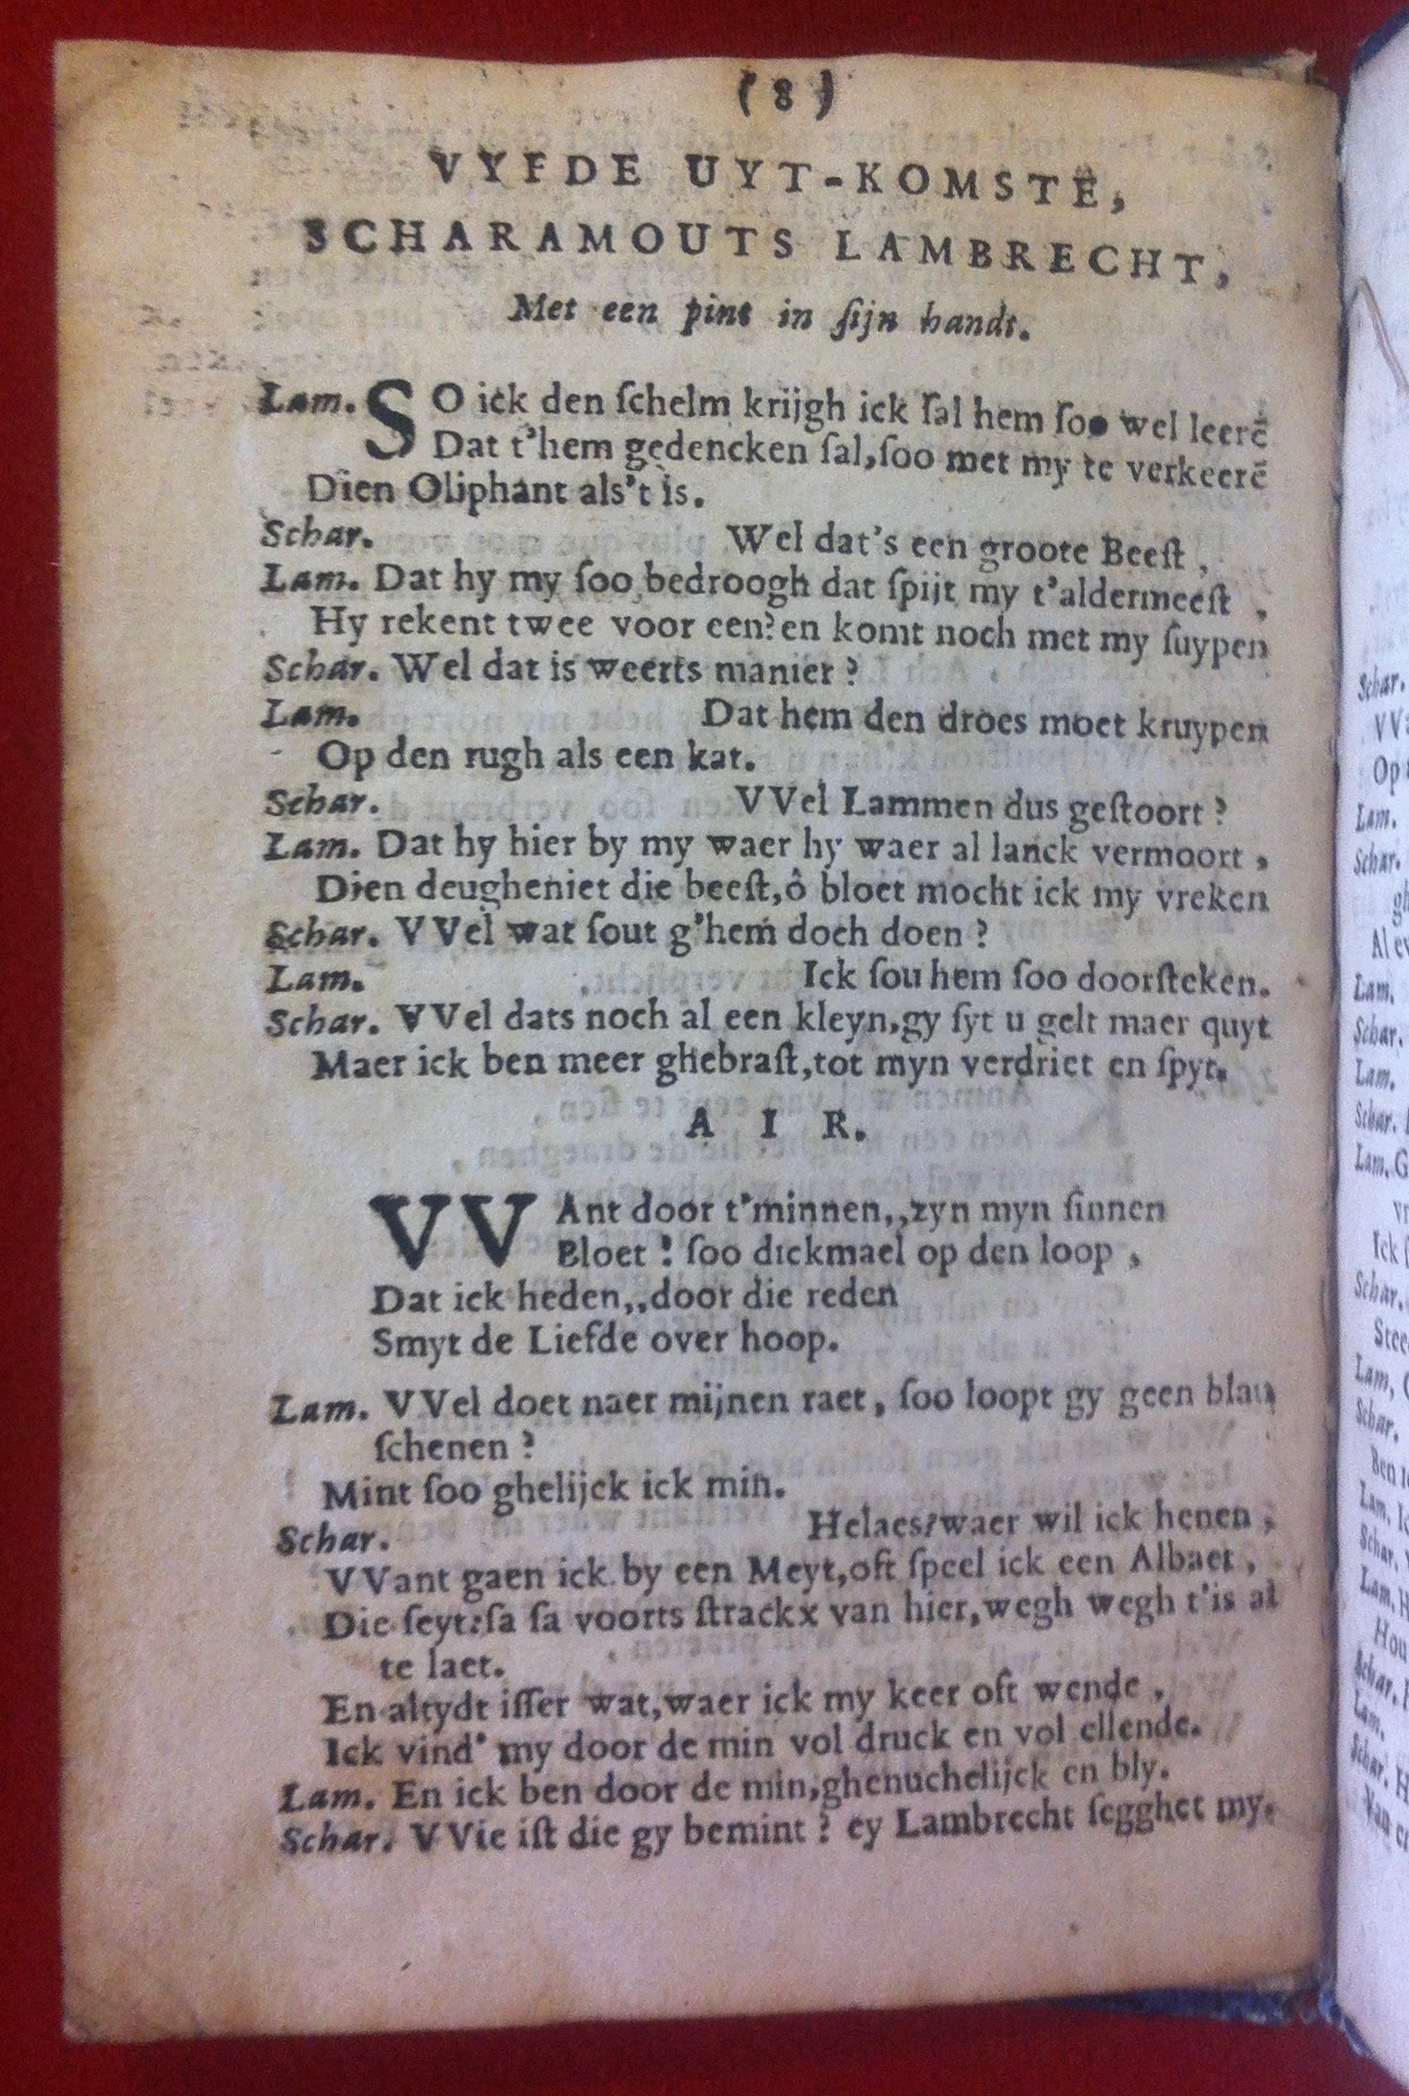 ( 8 )
VYFDE UYT-KOMSTE,
SCHARAMOUTS LAMBRECHT,
Met een pint in ſijn handt.
Lam. SO ick den ſchelm krijgh ick ſal hem ſoo wel leerē
Dat t'hem gedencken ſal,ſoo met my te verkeerē
Dien Oliphant als't is.
Schar. Wel dat's een groote Beeſt,
Lam. Dat hy my ſoo bedroogh dat ſpijt my t'aldermeeſt,
Hy rekent twee voor een?en komt noch met my ſuypen
Schar. Wel dat is weerts manier?
Lam. Dat hem den droes moet kruypen
Op den rugh als een kat.
Schar. VVel Lammen dus geſtoort?
Lam. Dat hy hier by my waer hy waer al lanck vermoort,
Dien deugheniet die beeſt,ô bloet mocht ick my vreken
Schar. VVel wat ſout g'hem doch doen?
Lam. Ick ſou hem ſoo doorſteken.
Schar. VVel dats noch al een kleyn,gy ſyt u gelt maer quyt
Maer ick ben meer ghebraſt,tot myn verdriet en ſpyt.
A I R.
VVAnt door t'minnen,,zyn myn ſinnen
Bloet! ſoo dickmael op den loop,
Dat ick heden,,door die reden
Smyt de Liefde over hoop.
Lam. VVel doet naer mijnen raet, ſoo loopt gy geen blau
ſchenen?
Mint ſoo ghelijck ick min.
Schar. Helaes!waer wil ick henen,
VVant gaen ick by een Meyt,oft ſpeel ick een Albaet,
Die ſeyt:ſa ſa voorts ſtrackx van hier,wegh wegh t'is al
te laet.
En altydt iſſer wat,waer ick my keer oft wende,
Ick vind' my door de min vol druck en vol ellende.
Lam. En ick ben door de min,ghenuchelijck en bly.
Schar. VVie iſt die gy bemint? ey Lambrecht ſegghet my.
Schar.
VV
Op
Lam.
Schar.
gh
Al
Lam.
Schar.
Lam.
Schar.
Lam. G
Ick
Schar.
Lam,
Schar.
Ben
Lam.
Schar.
Lam. H
Hou
Schar.
Lam.
Schar. H